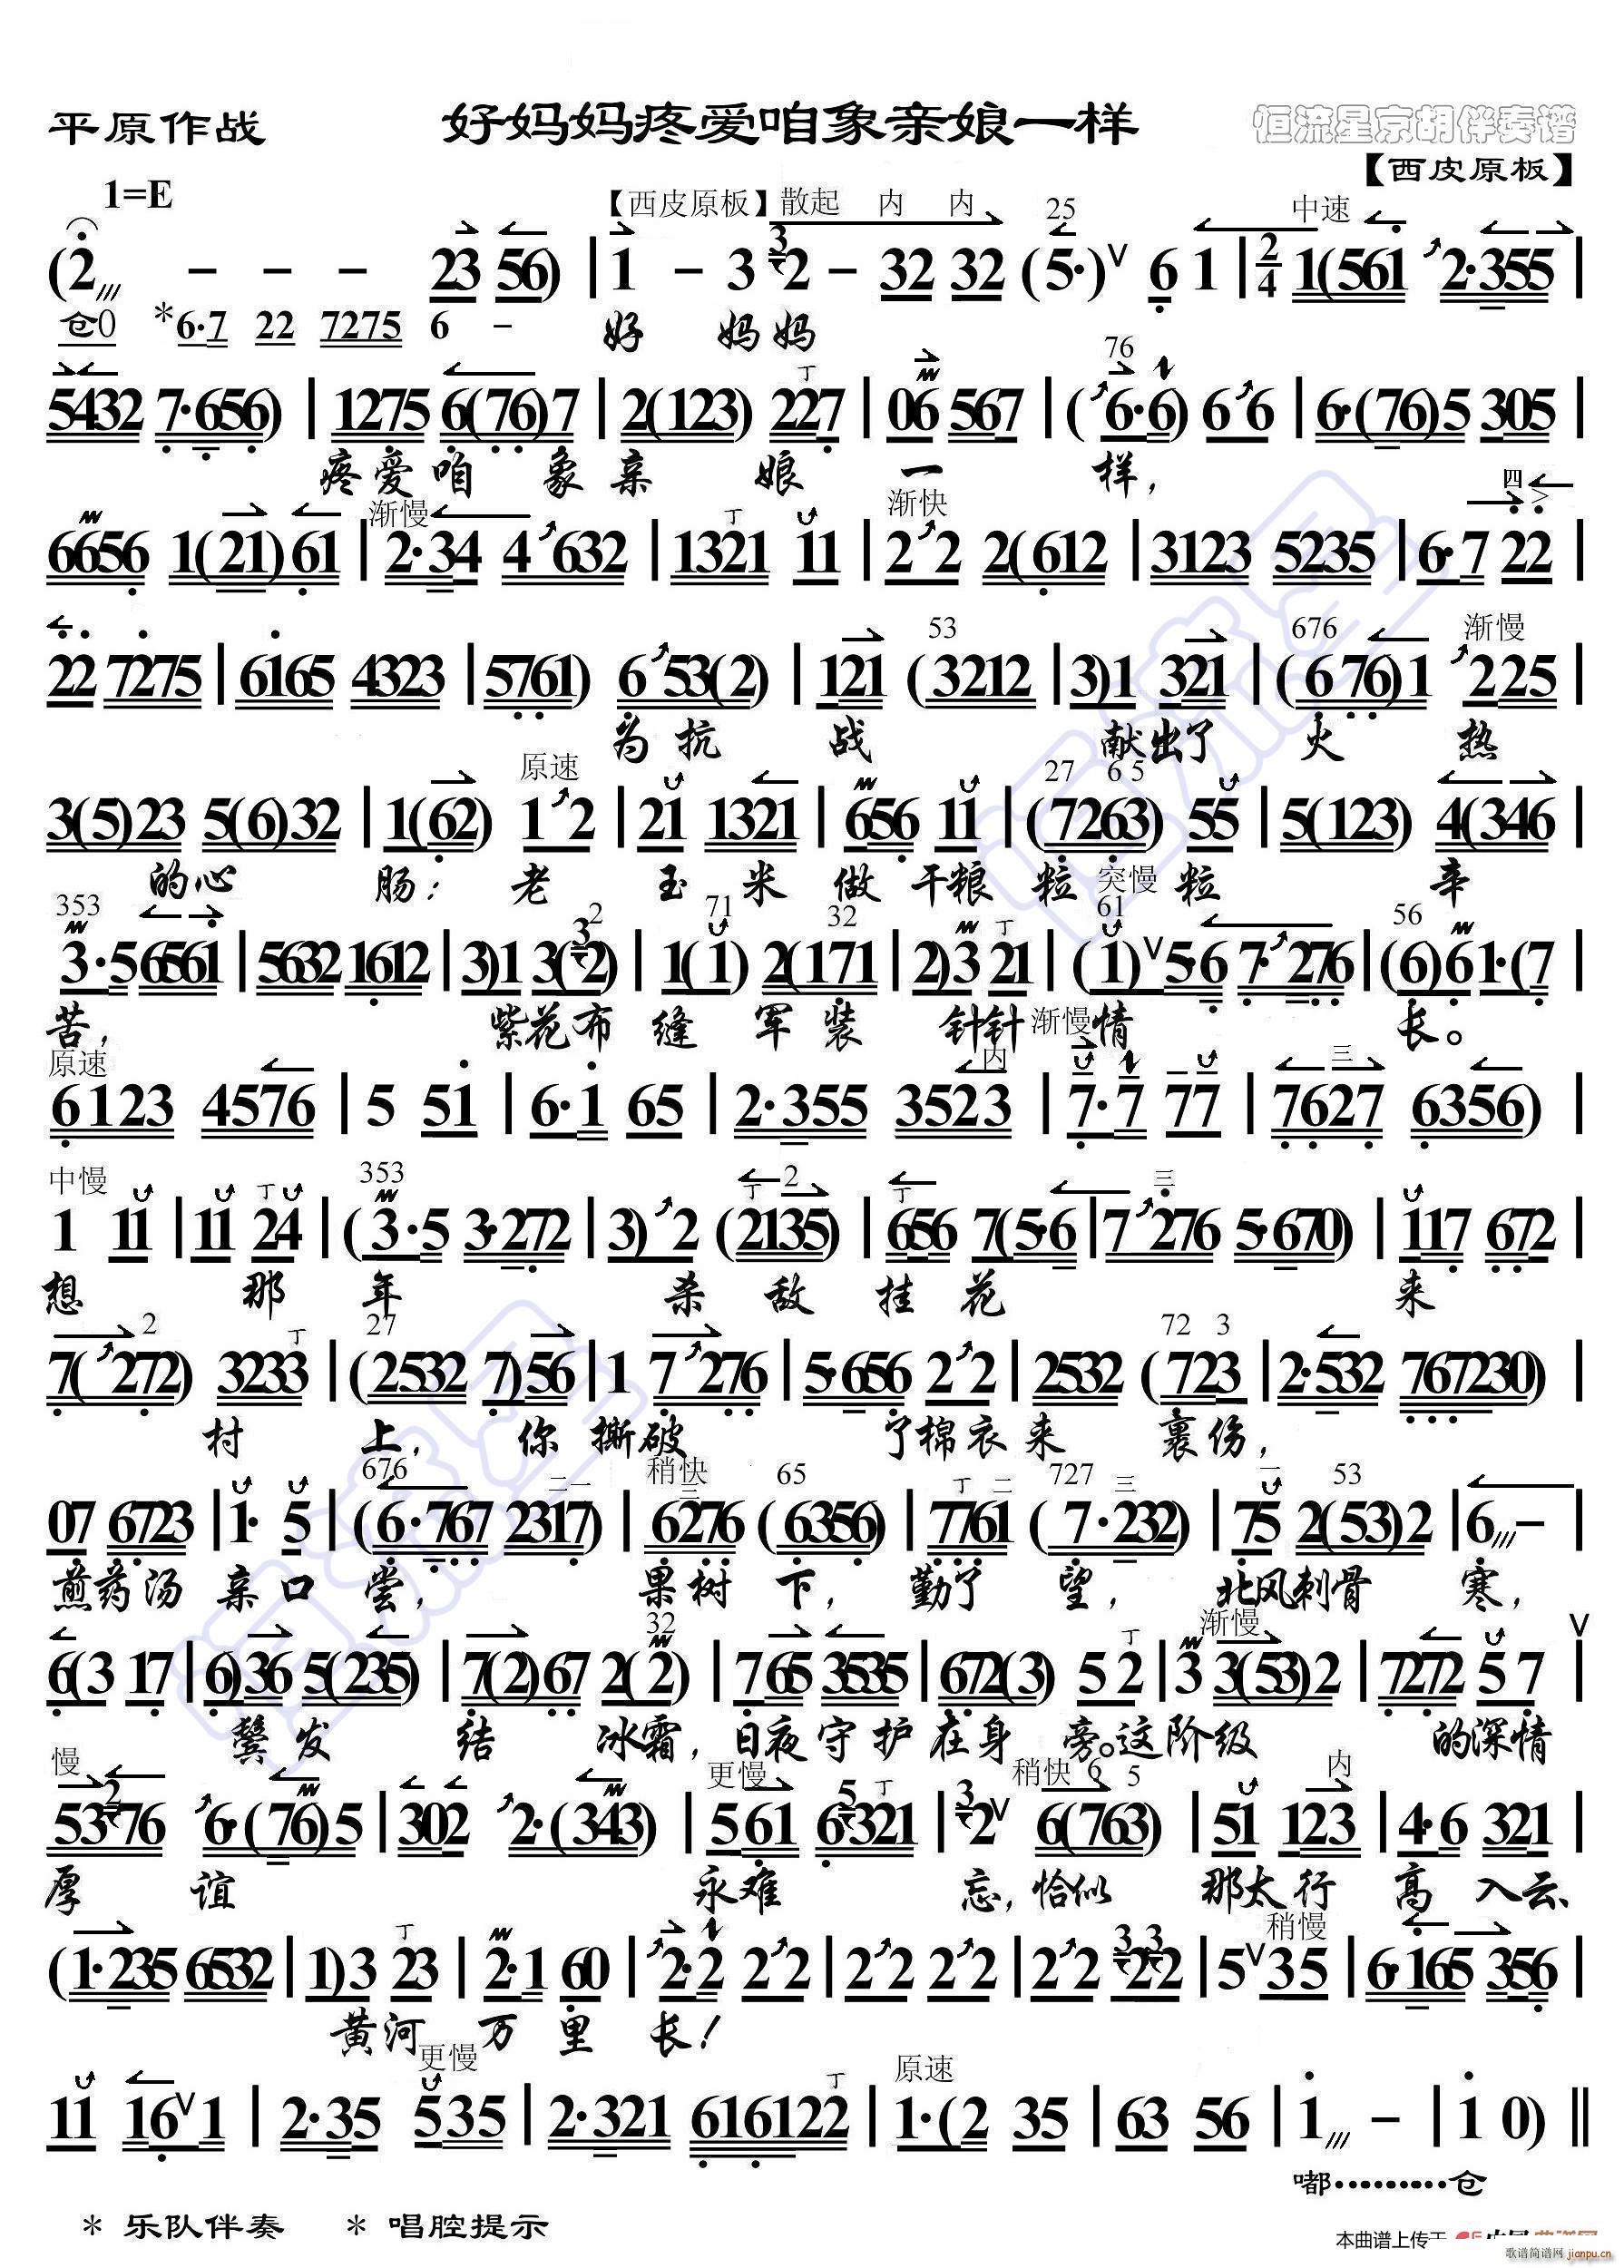 平原作战 好妈妈疼爱咱象亲娘一样 恒流星京胡伴奏谱
【西皮原板】
1=E 【西皮原板】散起 内 内 25 中速
(2 - - - 23 56) | 1 - 3 2 - 32 32 (5·) V 6 1 | 2/4 1(561 2·355 |
仓0 *6·7 22 7275 6 - 好 妈妈
76 丁
5432 7·656) | 1275 6(76)7 | 2(123) 227 | 06 567 | (6·6) 66 | 6·(76)5 305 |
疼爱咱 象亲 娘 一 样,
渐慢 丁 渐快 四
6656 1(21)61 | 2·34 4632 | 1321 11 | 22 2(612 | 3123 5235 | 6·7 22 |
53 676 渐慢
22 7275 | 6165 4323 | 5761) 653(2) | 121 (3212 | 3)1 321 | (676)1 225 |
为抗 战 献出了 火 热
原速 27 6 5
3(5)23 5(6)32 | 1(62) 12 | 21 1321 | 656 11 | (7263) 55 | 5(123) 4(346 |
的心 肠: 老 玉 米 做 干粮 粒 突慢 粒 辛
353 3 2 71 32 丁 61 56
3·5 6561 | 5632 1612 | 3)1 3(2) | 1(1) 2(171 | 2)3 21 | (1) V 5·6 7·276 | (6)61·(7 |
苦, 紫花布 缝 军 装 针针 渐慢 情 长。
原速 内 三
6123 4576 | 5 51 | 6·1 65 | 2·355 3523 | 7·7 77 | 7627 6356) |
中慢 丁 353 丁 2 丁 三
1 11 | 11 24 | (3·5 3·272 | 3)2 (2135) | 656 7(5·6 | 7276 5·670) | 117 672 |
想 那 年 杀 敌 挂 花 来
2 丁 27 72 3
7(272) 3233 | (2532 7)56 | 1 7276 | 5·656 22 | 2532 (723 | 2·532 767230) |
村 上, 你 撕破 了棉衣来 裹伤,
676 二一 稍快 三 65 丁 二 727 三 一 53
07 6723 | 1· 5 | (6·767 2317) | 6276 (6356) | 7761 (7·232) | 75 2(53)2 | 6 - |
煎药汤 亲口 尝, 果树 下, 勤了 望, 北风刺骨 寒,
32 丁 渐慢 V
6(3 17 | 6)36 5(235) | 7(2)67 2(2) | 765 3535 | 672(3) 52 | 3 3(53)2 | 7272 57 |
鬓发 结 冰霜, 日夜守护在身 旁。这阶级 的深情
慢 更慢 丁 稍快 6 5 内
5376 6·(76)5 | 302 2·(343) | 561 6321 | 2 V 6(763) | 51 123 | 4·6 321 |
厚 谊 永难 忘, 恰似 那太行 高 入云,
丁 稍慢
(1·235 6532 | 1)3 23 | 2·1 60 | 2·2 22 | 22 22 | 22 22 | 5 V 35 | 6·165 356 |
黄河 万里 长!
更慢 丁 原速
11 16 V 1 | 2·35 535 | 2·321 616122 | 1·(2 35 | 63 56 | 1 - | 1 0) ‖
嘟………仓
* 乐队伴奏 * 唱腔提示
本曲谱上传于
歌谱简谱网 jianpu.cn